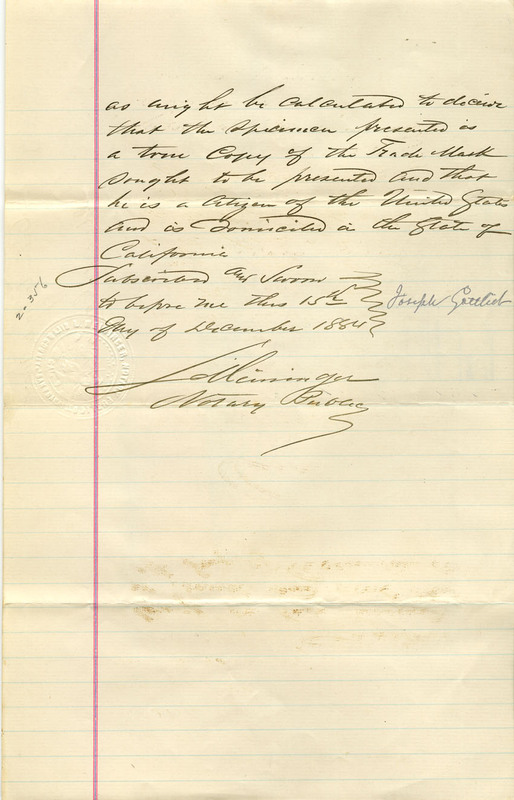 as might be calculated to deceive
that the specimen presented is
a true Copy of the Trade Mark
sought to be presented and that
he is a Citizen of the United States
and is Domiciled in the State of
California
Subscribed and Sworn
to before me this 15th
Day of December 1884
Joseph Gottlieb
2-356
Notary Public